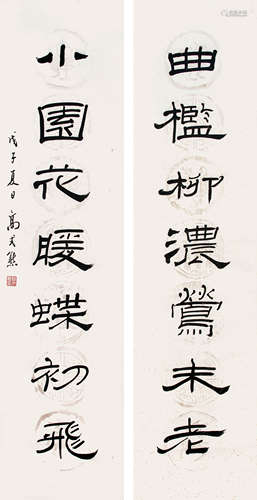 曲檻柳濃鶯未老
小園花暖蝶初飛
戊子夏日高式熊